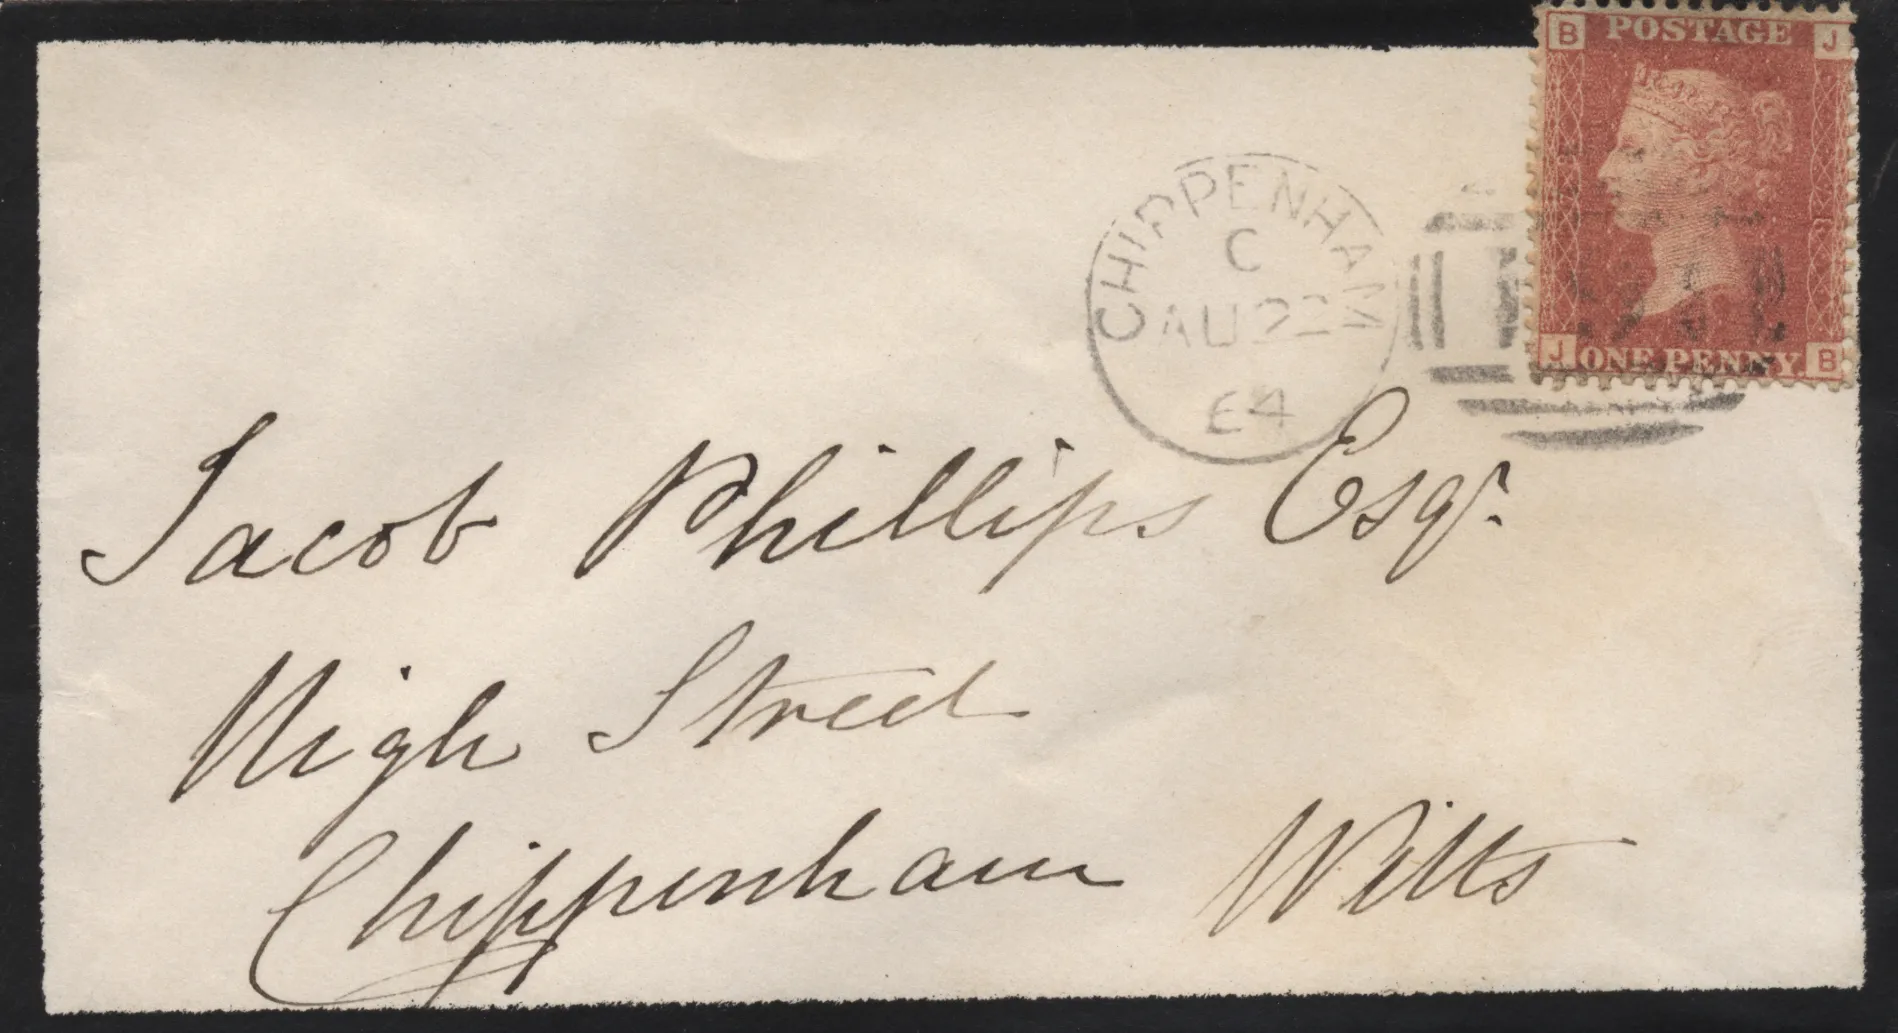 B POSTAGE J
J ONE PENNY B
CHIPPENHAM
C
AU 22
64
Jacob Phillips Esqr.
High Street
Chippenham Wilts